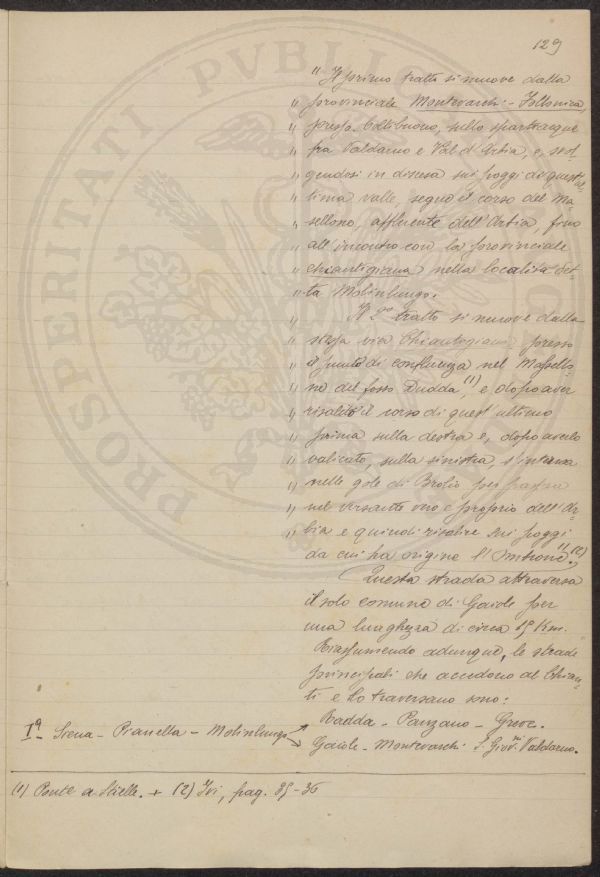 129
" Il primo tratto si muove dalla
" provinciale Montevarchi - Follonica,
" presso Coltibuono, sullo spartiacque
" fra Valdarno e Val d'Arbia, e, svol
" gendosi in discesa sui poggi di quest'ul-
" tima valle, segue il corso del Ma-
" sellone, affluente dell'Arbia, fino
" all'incontro con la provinciale
" chiantigiana nella località det-
" ta Molinlungo.
" Il 2º tratto si muove dalla
" stessa via Chiantigiana presso
" il punto di confluenza nel Massello-
" ne del fosso Dudda,(1) e dopo aver
" risalito il corso di quest'ultimo
" prima sulla destra e, dopo averlo
" valicato, sulla sinistra s'interna
" nelle gole di Brolio per passare
" nel versante vero e proprio dell'Ar-
" bia e quindi risalire sui poggi
da cui ha origine l'Ombrone".(2)
Questa strada attraversa
il solo comune di Gaiole per
una lunghezza di circa 19 Km.
Riassumendo adunque, le strade
principali che accedono al Chian-
ti e lo traversano sono:
Radda - Panzano - Greve.
Iª - Siena - Pianella - Molinlungo
Gaiole - Montevarchi S. Giovⁿⁱ Valdarno.
(1) Ponte a Stielle. + (2) Ivi, pag. 35-36
PROSPERITATI PVBLICAE